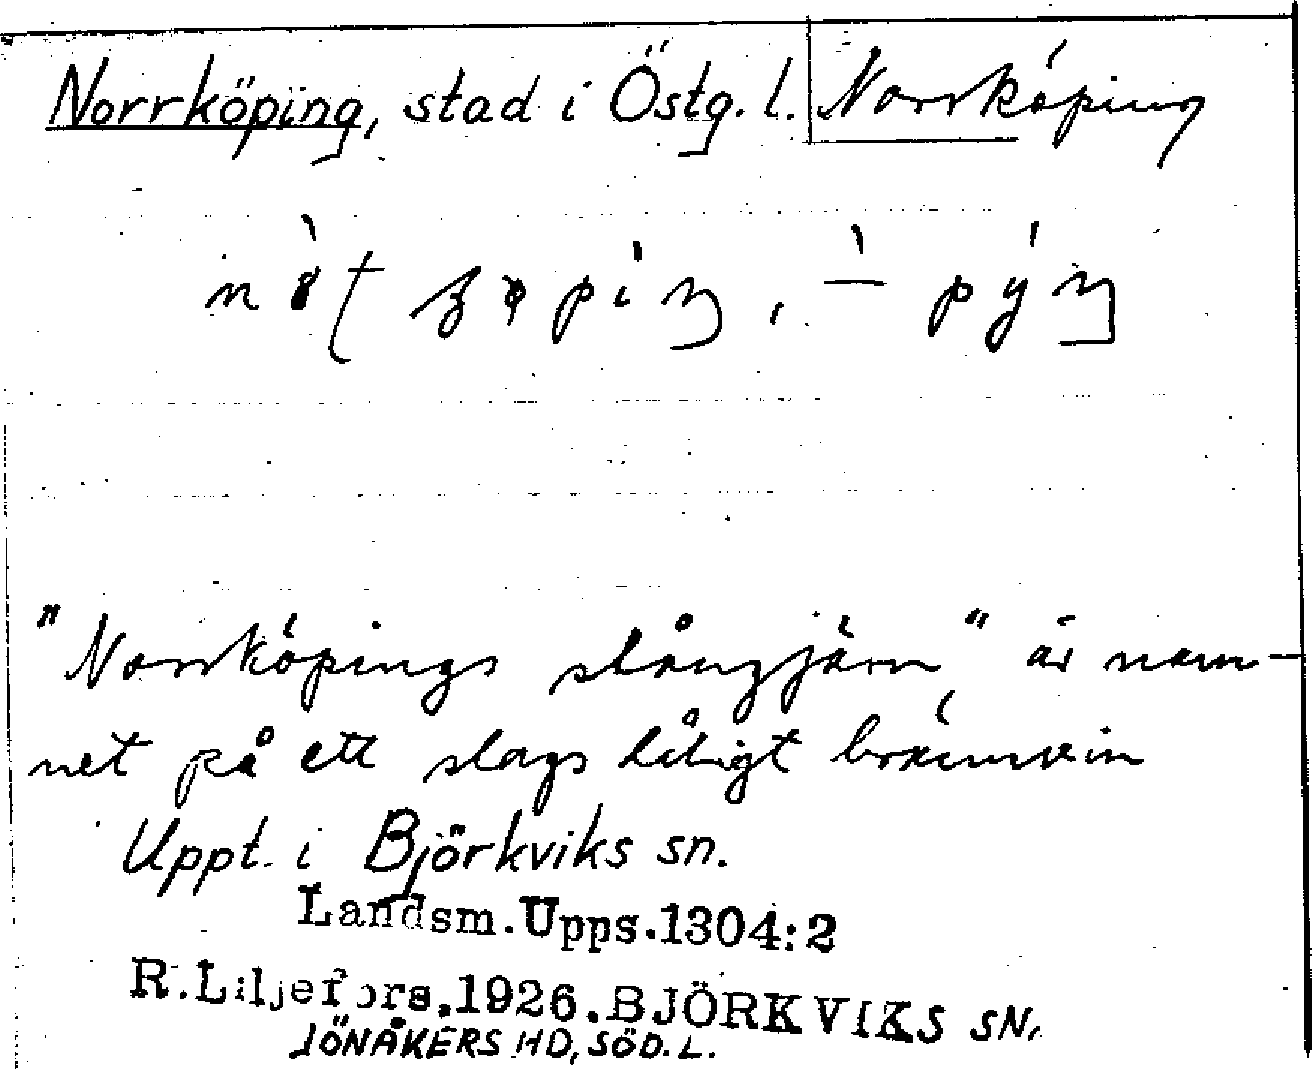 Norrköping, stad i Östg. l. Norrköping
"Norrköpings stångjärn" är nam-
net på ett slags dåligt brännvin
Uppt. i Björkviks sn.
Landsm.Upps.1304:2
R.Liljefors.1926.BJÖRKVIKS SN.
JÖNÅKERS HD, SÖD. L.